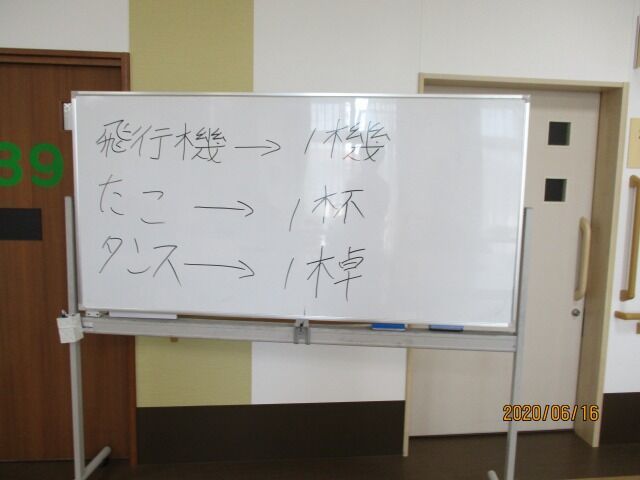 飛行機→1機
たこ→1杯
タンス→1棹
39
2020/06/16